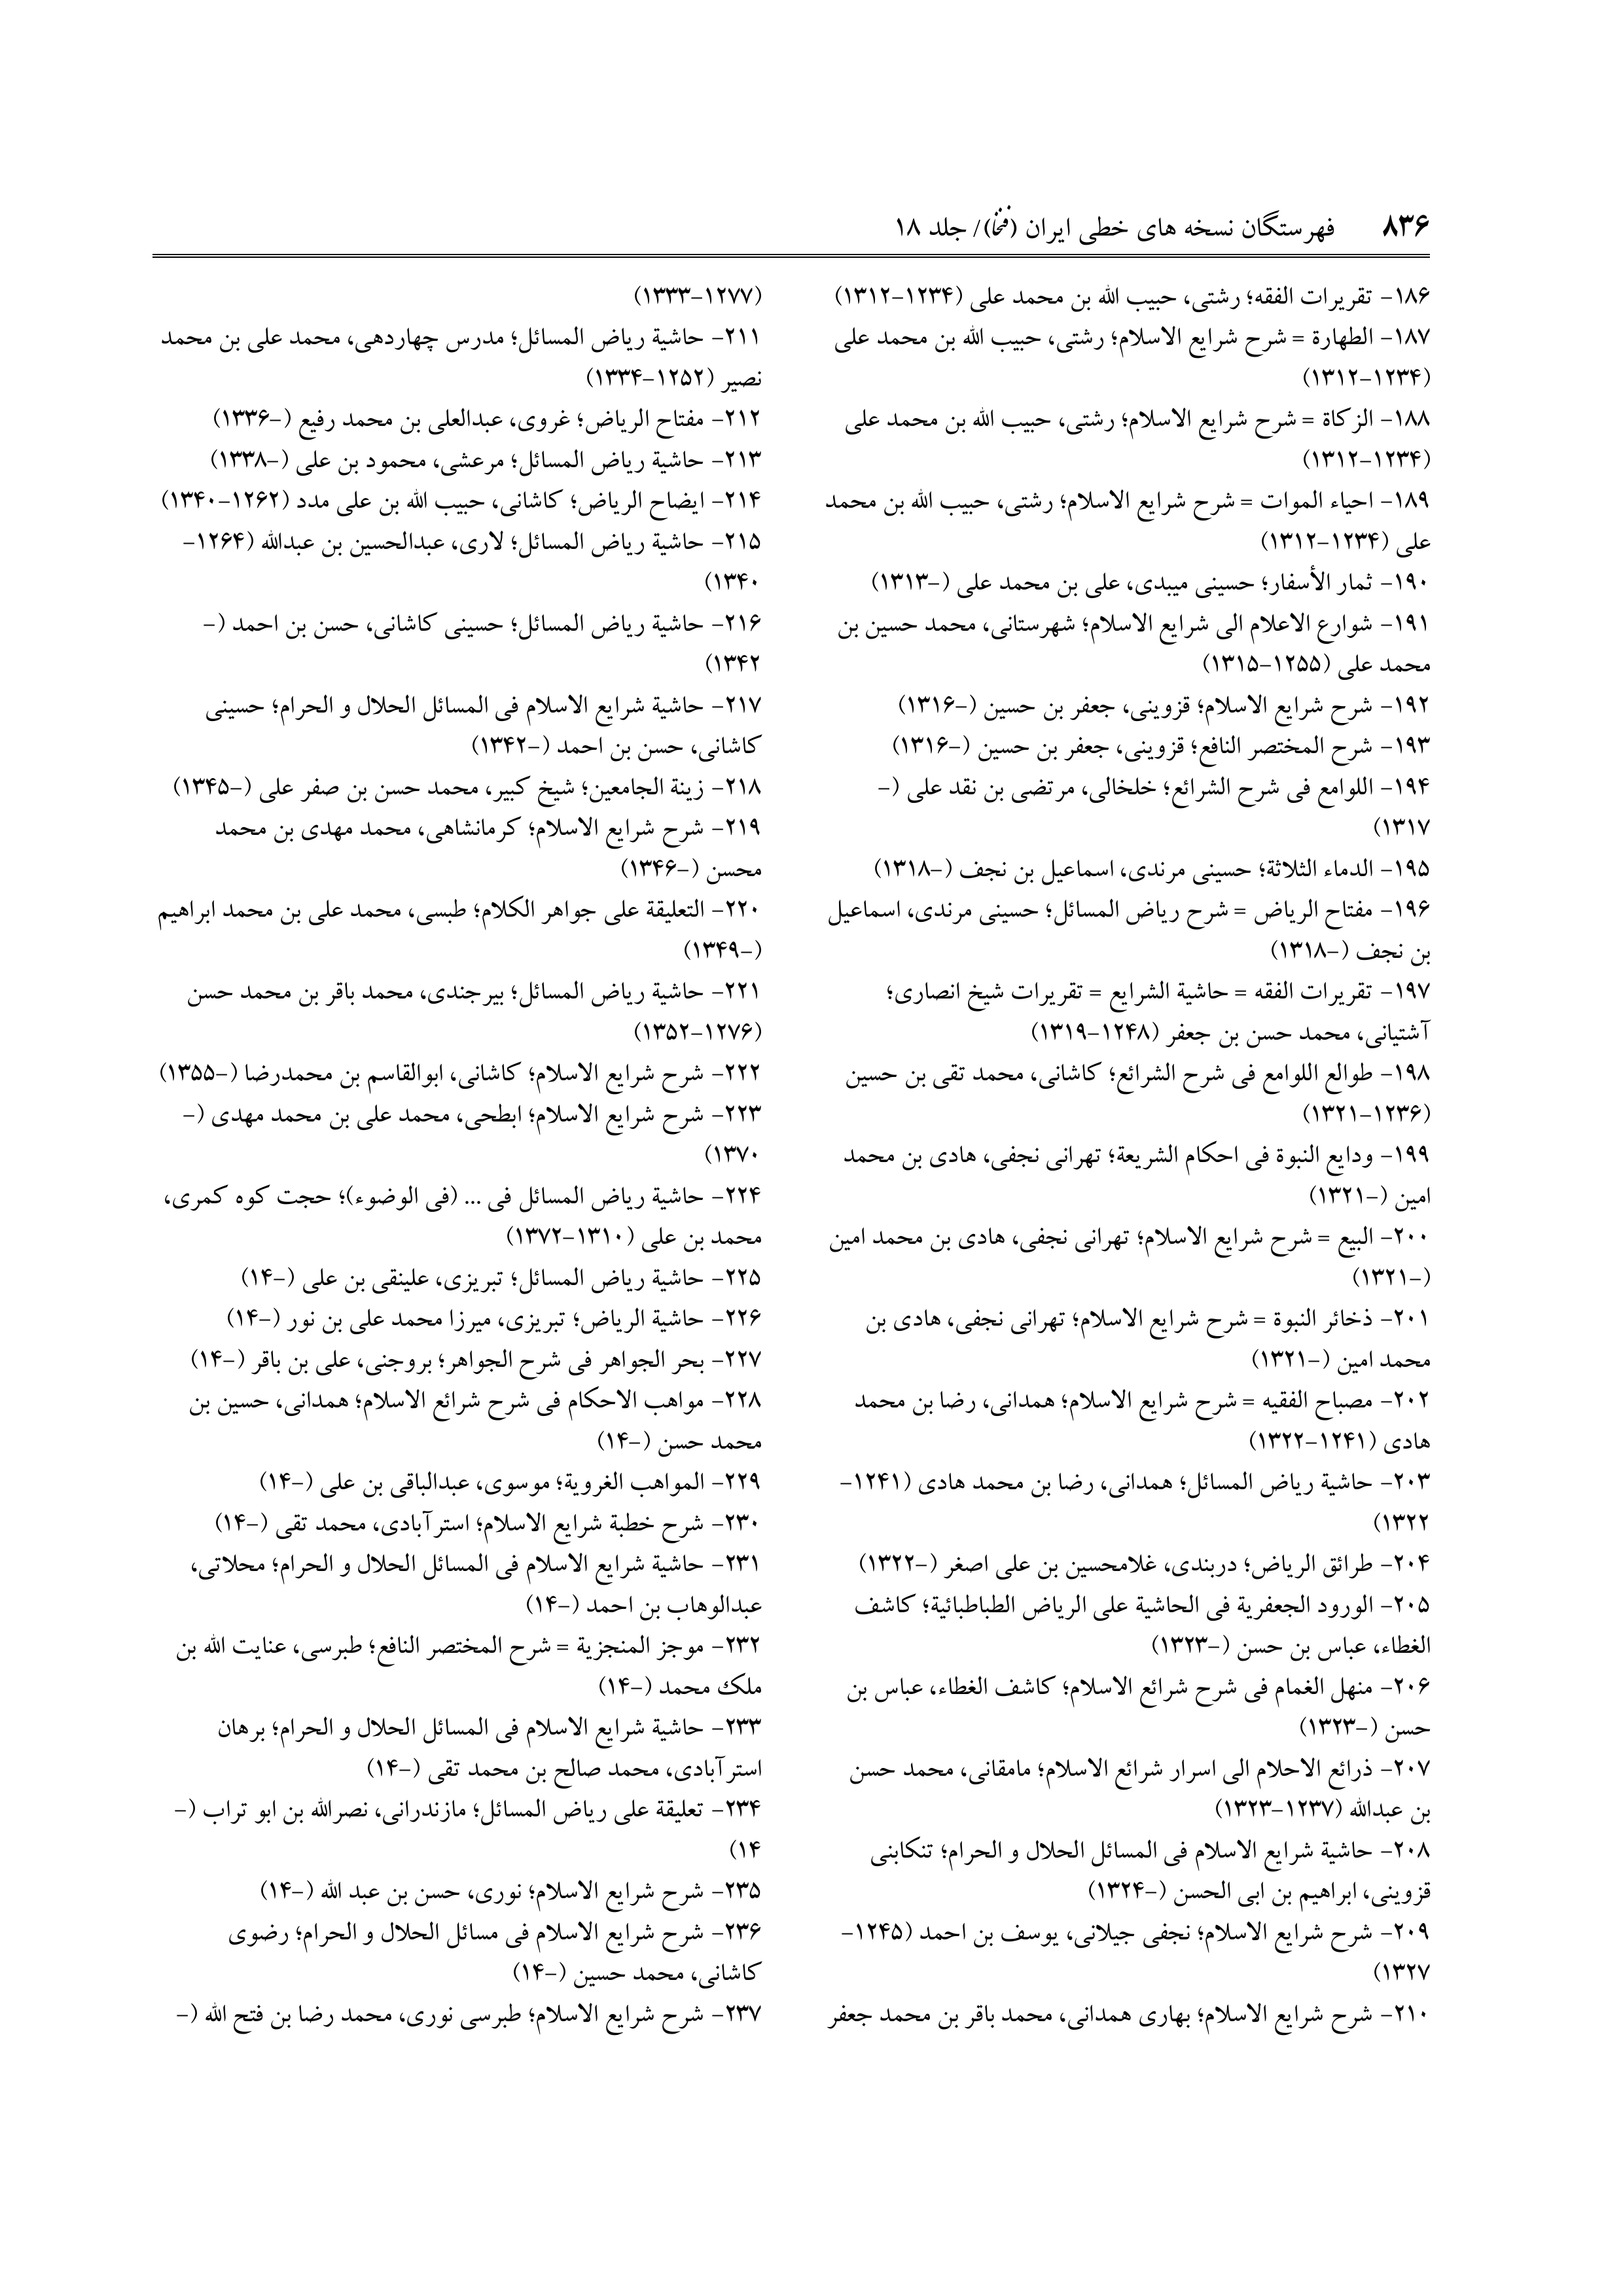 ۸۳۶ فهرستگان نسخه های خطی ایران (فنخا)/ جلد ۱۸
۱۸۶- تقریرات الفقه؛ رشتی، حبیب الله بن محمد علی (۱۲۳۴-۱۳۱۲)
۱۸۷- الطهارة = شرح شرایع الاسلام؛ رشتی، حبیب الله بن محمد علی
(۱۲۳۴-۱۳۱۲)
۱۸۸- الزکاة = شرح شرایع الاسلام؛ رشتی، حبیب الله بن محمد علی
(۱۲۳۴-۱۳۱۲)
۱۸۹- احیاء الموات = شرح شرایع الاسلام؛ رشتی، حبیب الله بن محمد
علی (۱۲۳۴-۱۳۱۲)
۱۹۰- ثمار الأسفار؛ حسینی میبدی، علی بن محمد علی (-۱۳۱۳)
۱۹۱- شوارع الاعلام الی شرایع الاسلام؛ شهرستانی، محمد حسین بن
محمد علی (۱۲۵۵-۱۳۱۵)
۱۹۲- شرح شرایع الاسلام؛ قزوینی، جعفر بن حسین (-۱۳۱۶)
۱۹۳- شرح المختصر النافع؛ قزوینی، جعفر بن حسین (-۱۳۱۶)
۱۹۴- اللوامع فی شرح الشرائع؛ خلخالی، مرتضی بن نقد علی (-
۱۳۱۷)
۱۹۵- الدماء الثلاثة؛ حسینی مرندی، اسماعیل بن نجف (-۱۳۱۸)
۱۹۶- مفتاح الریاض = شرح ریاض المسائل؛ حسینی مرندی، اسماعیل
بن نجف (-۱۳۱۸)
۱۹۷- تقریرات الفقه = حاشیة الشرایع = تقریرات شیخ انصاری؛
آشتیانی، محمد حسن بن جعفر (۱۲۴۸-۱۳۱۹)
۱۹۸- طوالع اللوامع فی شرح الشرائع؛ کاشانی، محمد تقی بن حسین
(۱۲۳۶-۱۳۲۱)
۱۹۹- ودایع النبوة فی احکام الشریعة؛ تهرانی نجفی، هادی بن محمد
امین (-۱۳۲۱)
۲۰۰- البیع = شرح شرایع الاسلام؛ تهرانی نجفی، هادی بن محمد امین
(-۱۳۲۱)
۲۰۱- ذخائر النبوة = شرح شرایع الاسلام؛ تهرانی نجفی، هادی بن
محمد امین (-۱۳۲۱)
۲۰۲- مصباح الفقیه = شرح شرایع الاسلام؛ همدانی، رضا بن محمد
هادی (۱۲۴۱-۱۳۲۲)
۲۰۳- حاشیة ریاض المسائل؛ همدانی، رضا بن محمد هادی (۱۲۴۱-
۱۳۲۲)
۲۰۴- طرائق الریاض؛ دربندی، غلامحسین بن علی اصغر (-۱۳۲۲)
۲۰۵- الورود الجعفریة فی الحاشیة علی الریاض الطباطبائیة؛ کاشف
الغطاء، عباس بن حسن (-۱۳۲۳)
۲۰۶- منهل الغمام فی شرح شرائع الاسلام؛ کاشف الغطاء، عباس بن
حسن (-۱۳۲۳)
۲۰۷- ذرائع الاحلام الی اسرار شرائع الاسلام؛ مامقانی، محمد حسن
بن عبدالله (۱۲۳۷-۱۳۲۳)
۲۰۸- حاشیة شرایع الاسلام فی المسائل الحلال و الحرام؛ تنکابنی
قزوینی، ابراهیم بن ابی الحسن (-۱۳۲۴)
۲۰۹- شرح شرایع الاسلام؛ نجفی جیلانی، یوسف بن احمد (۱۲۴۵-
۱۳۲۷)
۲۱۰- شرح شرایع الاسلام؛ بهاری همدانی، محمد باقر بن محمد جعفر
(۱۲۷۷-۱۳۳۳)
۲۱۱- حاشیة ریاض المسائل؛ مدرس چهاردهی، محمد علی بن محمد
نصیر (۱۲۵۲-۱۳۳۴)
۲۱۲- مفتاح الریاض؛ غروی، عبدالعلی بن محمد رفیع (-۱۳۳۶)
۲۱۳- حاشیة ریاض المسائل؛ مرعشی، محمود بن علی (-۱۳۳۸)
۲۱۴- ایضاح الریاض؛ کاشانی، حبیب الله بن علی مدد (۱۲۶۲-۱۳۴۰)
۲۱۵- حاشیة ریاض المسائل؛ لاری، عبدالحسین بن عبدالله (۱۲۶۴-
۱۳۴۰)
۲۱۶- حاشیة ریاض المسائل؛ حسینی کاشانی، حسن بن احمد (-
۱۳۴۲)
۲۱۷- حاشیة شرایع الاسلام فی المسائل الحلال و الحرام؛ حسینی
کاشانی، حسن بن احمد (-۱۳۴۲)
۲۱۸- زینة الجامعین؛ شیخ کبیر، محمد حسن بن صفر علی (-۱۳۴۵)
۲۱۹- شرح شرایع الاسلام؛ کرمانشاهی، محمد مهدی بن محمد
محسن (-۱۳۴۶)
۲۲۰- التعلیقة علی جواهر الکلام؛ طبسی، محمد علی بن محمد ابراهیم
(-۱۳۴۹)
۲۲۱- حاشیة ریاض المسائل؛ بیرجندی، محمد باقر بن محمد حسن
(۱۲۷۶-۱۳۵۲)
۲۲۲- شرح شرایع الاسلام؛ کاشانی، ابوالقاسم بن محمدرضا (-۱۳۵۵)
۲۲۳- شرح شرایع الاسلام؛ ابطحی، محمد علی بن محمد مهدی (-
۱۳۷۰)
۲۲۴- حاشیة ریاض المسائل فی ... (فی الوضوء)؛ حجت کوه کمری،
محمد بن علی (۱۳۱۰-۱۳۷۲)
۲۲۵- حاشیة ریاض المسائل؛ تبریزی، علینقی بن علی (-۱۴)
۲۲۶- حاشیة الریاض؛ تبریزی، میرزا محمد علی بن نور (-۱۴)
۲۲۷- بحر الجواهر فی شرح الجواهر؛ بروجنی، علی بن باقر (-۱۴)
۲۲۸- مواهب الاحکام فی شرح شرائع الاسلام؛ همدانی، حسین بن
محمد حسن (-۱۴)
۲۲۹- المواهب الغرویة؛ موسوی، عبدالباقی بن علی (-۱۴)
۲۳۰- شرح خطبة شرایع الاسلام؛ استرآبادی، محمد تقی (-۱۴)
۲۳۱- حاشیة شرایع الاسلام فی المسائل الحلال و الحرام؛ محلاتی،
عبدالوهاب بن احمد (-۱۴)
۲۳۲- موجز المنجزیة = شرح المختصر النافع؛ طبرسی، عنایت الله بن
ملک محمد (-۱۴)
۲۳۳- حاشیة شرایع الاسلام فی المسائل الحلال و الحرام؛ برهان
استرآبادی، محمد صالح بن محمد تقی (-۱۴)
۲۳۴- تعلیقة علی ریاض المسائل؛ مازندرانی، نصرالله بن ابو تراب (-
۱۴)
۲۳۵- شرح شرایع الاسلام؛ نوری، حسن بن عبد الله (-۱۴)
۲۳۶- شرح شرایع الاسلام فی مسائل الحلال و الحرام؛ رضوی
کاشانی، محمد حسین (-۱۴)
۲۳۷- شرح شرایع الاسلام؛ طبرسی نوری، محمد رضا بن فتح الله (-